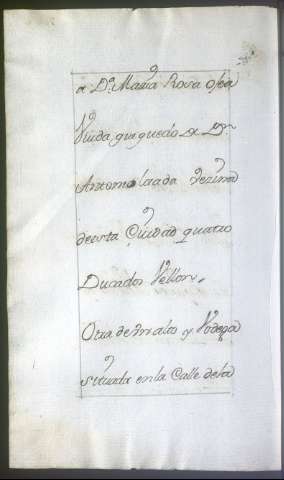 a Dª Maria Rosa Ossa
Viuda, que quedó de Dn
Antonio laada Vezina
de esta Ciudad quatro
Ducados Vellon,
Otra de un alto y Vodega
situada en la Calle de la